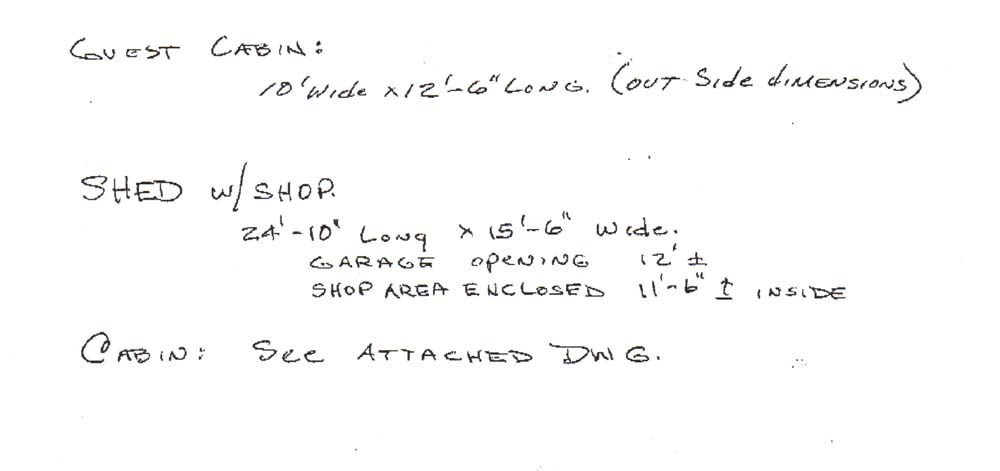 GUEST CABIN:
10' Wide x 12'-6" LONG. (OUT Side dIMENSIONS)
SHED w/ SHOP.
24'-10" Long x 15'-6" Wide.
GARAGE OPENING 12' ±
SHOP AREA ENCLOSED 11'-6" ± INSIDE
CABIN: See ATTACHED DWG.